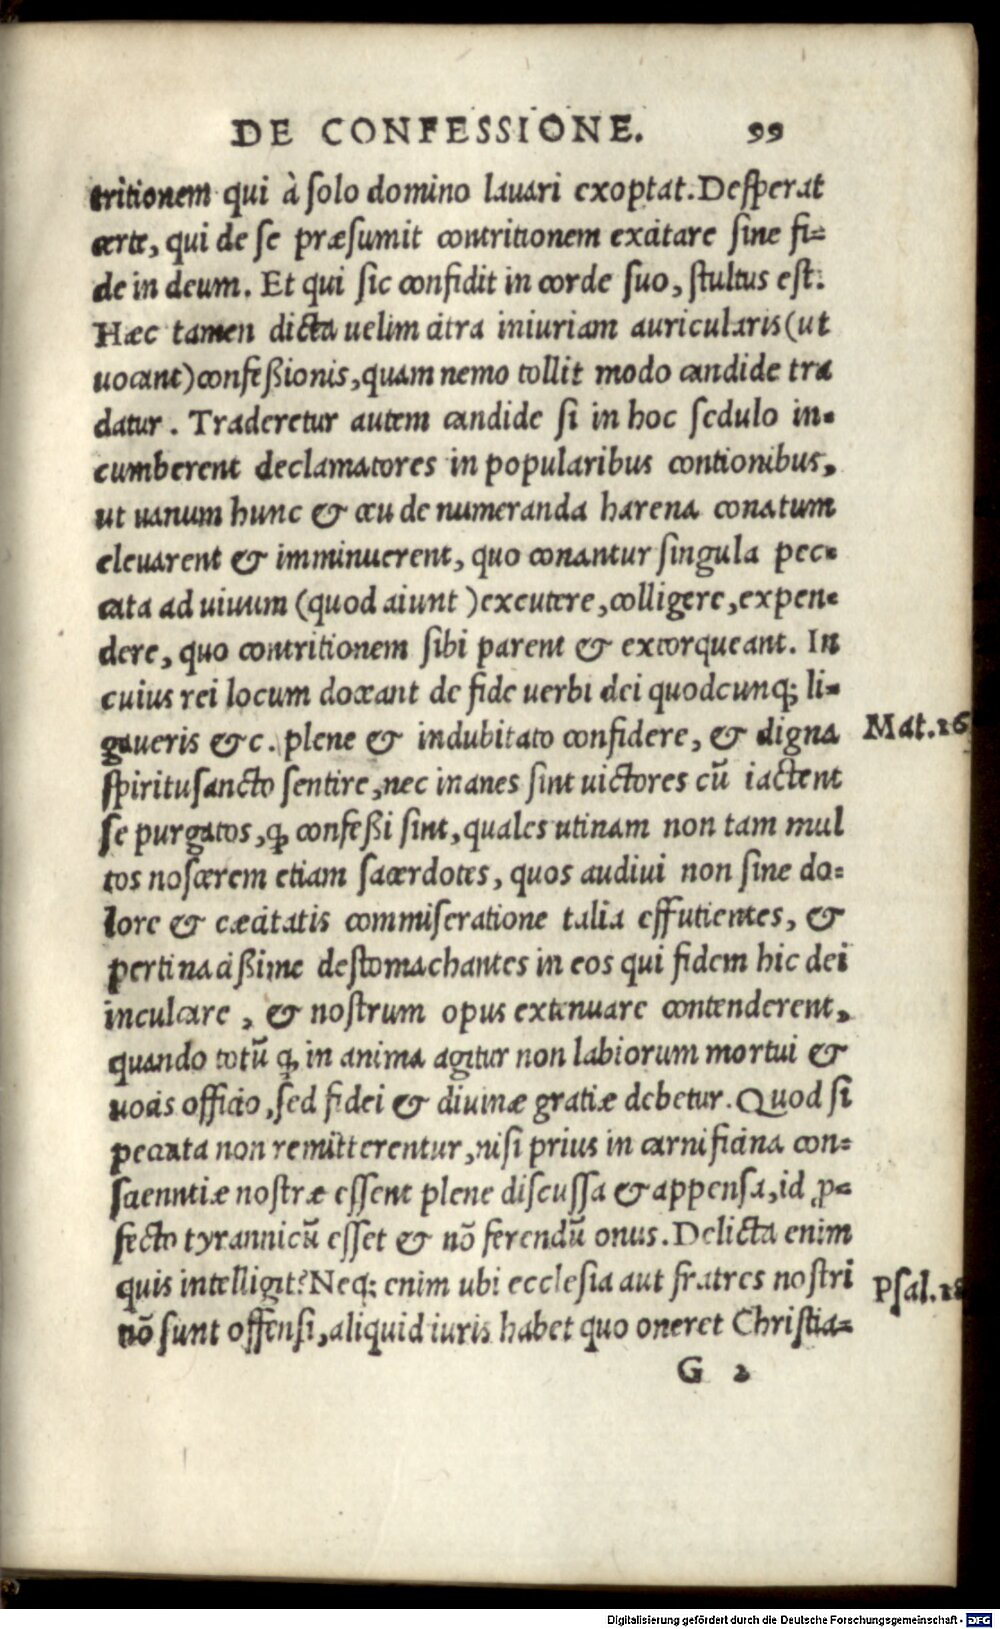 DE CONFESSIONE. 99
tritionem qui à ſolo domino lauari exoptat. Deſperat
certe, qui de ſe præſumit contritionem excitare ſine fi=
de in deum. Et qui ſic confidit in corde ſuo, ſtultus eſt.
Hæc tamen dicta uelim citra iniuriam auricularis (ut
uocant) confeßionis, quam nemo tollit modo candide tra
datur. Traderetur autem candide ſi in hoc ſedulo in=
cumberent declamatores in popularibus contionibus,
ut uanum hunc & ceu de numeranda harena conatum
eleuarent & imminuerent, quo conantur ſingula pec=
cata ad uiuum (quod aiunt) excutere, colligere, expen=
dere, quo contritionem ſibi parent & extorqueant. In
cuius rei locum doceant de fide uerbi dei quodcunq; li=
gaueris &c. plene & indubitato confidere, & digna
Mat. 16
ſpirituſancto ſentire, nec inanes ſint uictores cū iactent
ſe purgatos, ꝙ confeßi ſint, quales utinam non tam mul
tos noſcerem etiam ſacerdotes, quos audiui non ſine do=
lore & cæcitatis commiſeratione talia effutientes, &
pertinacißime deſtomachantes in eos qui fidem hic dei
inculcare, & noſtrum opus extenuare contenderent,
quando totū ꝙ in anima agitur non labiorum mortui &
uocis officio, ſed fidei & diuinæ gratiæ debetur. Quod ſi
peccata non remitterentur, niſi prius in carnificina con=
ſcienntiæ noſtræ eſſent plene diſcuſſa & appenſa, id ꝓ=
fecto tyrannicū eſſet & nō ferendū onus. Delicta enim
quis intelligit? Neq; enim ubi eccleſia aut fratres noſtri
Pſal. 18
nō ſunt offenſi, aliquid iuris habet quo oneret Chriſtia=
G 2
Digitalisierung gefördert durch die Deutsche Forschungsgemeinschaft - DFG